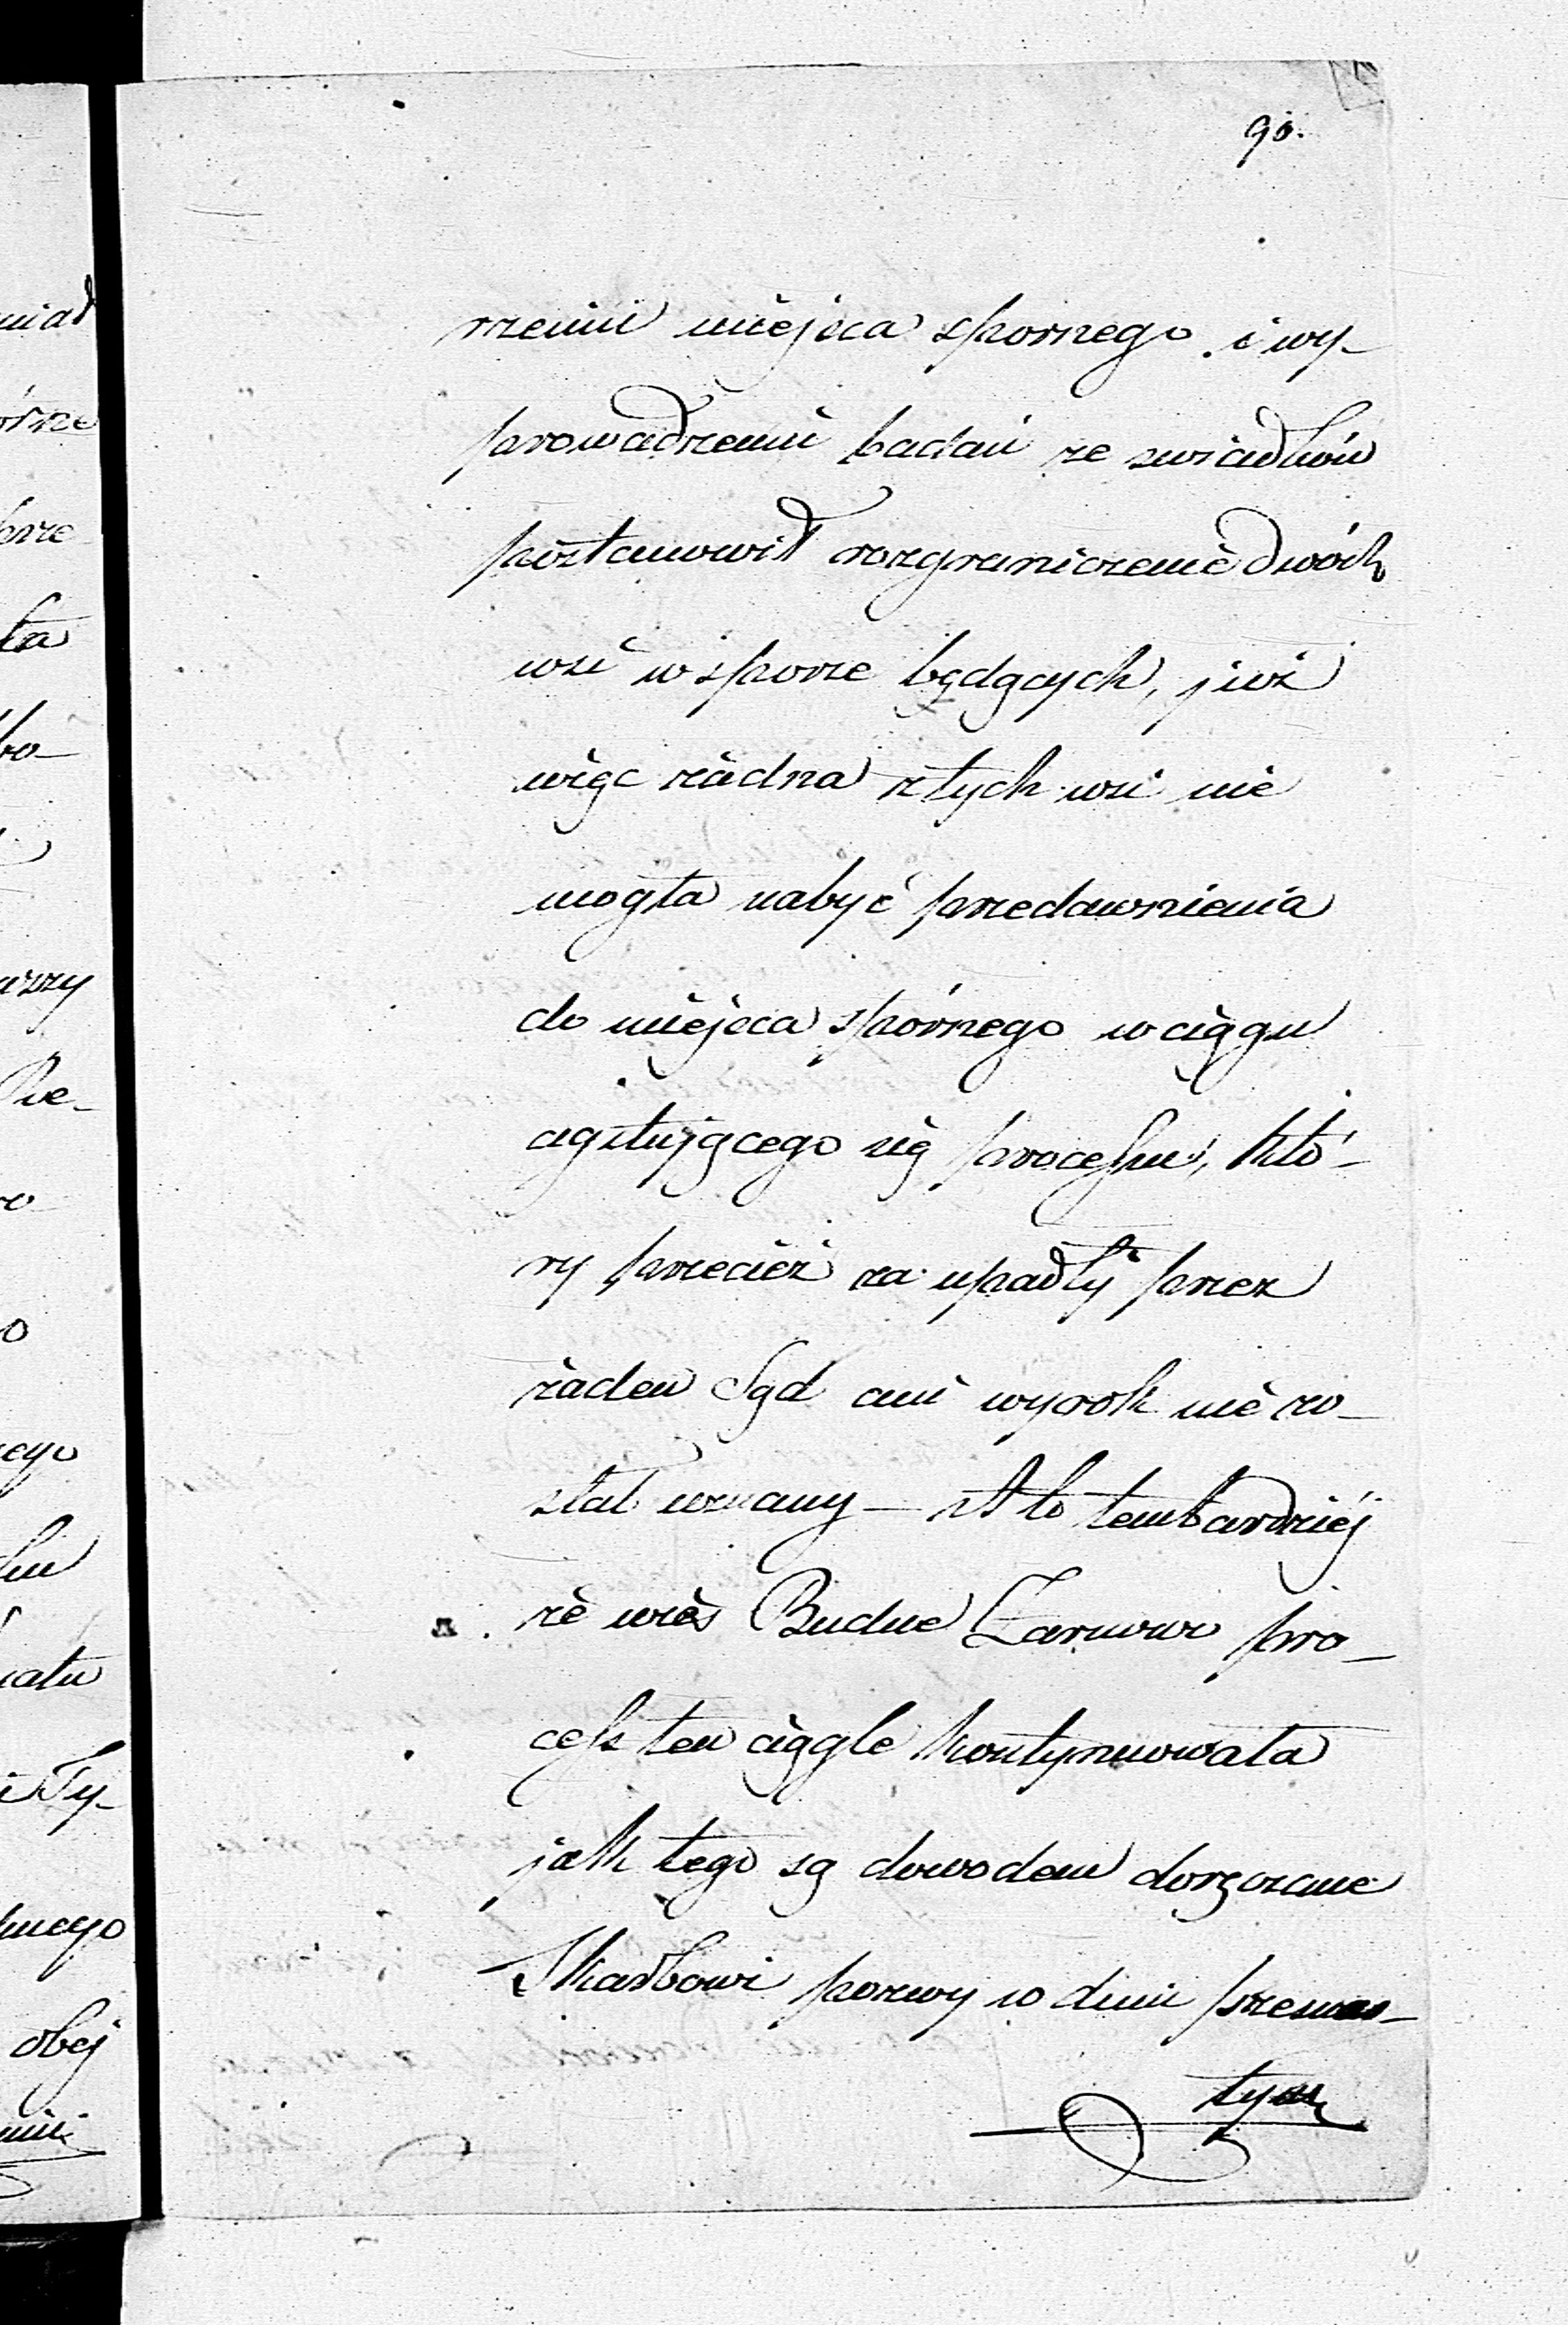 90.
rzeniu miejsca spornego i wy-
prowadzeniu badań ze swiadków
postanowił rozgraniczenie dwóch
wsi w sporze będących, już
więc żadna z tych wsi nie
mogła nabyć przedawnienia
do miejsca spórnego w ciągu
agitującego się processu, któ-
ry przecież za upadły przez
żaden Sąd ani wyrok nie zo-
stał uznany — A to tembardziéj
że wieś Budne Żarnowo pro-
cess ten ciągle kontynuowała
jak tego są dowodem doręczone
Skarbowi pozwy w dniu
tym